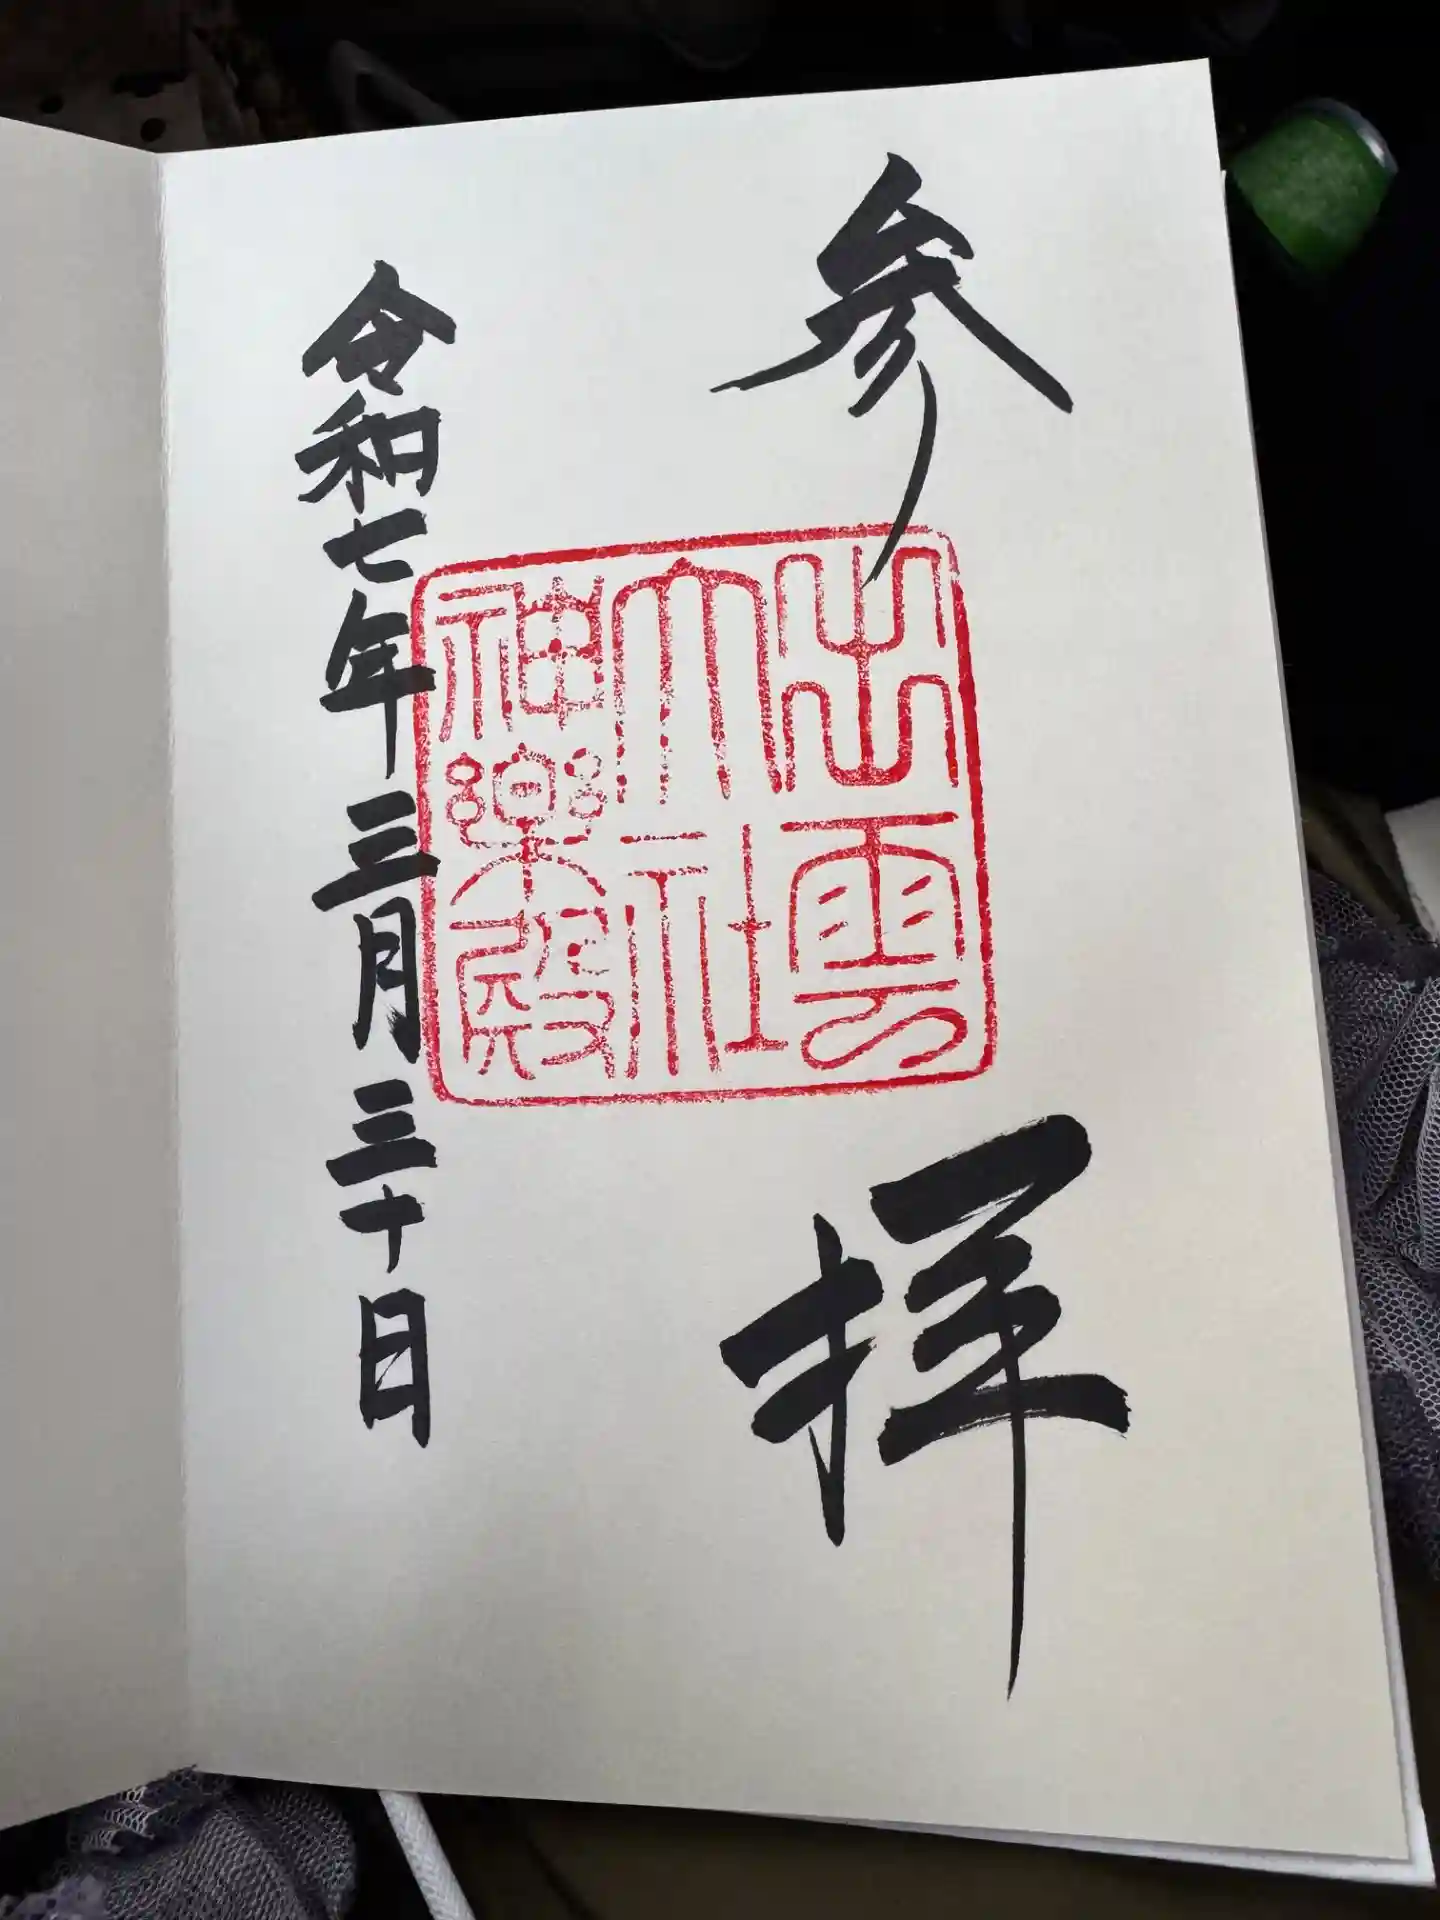 参拝
出雲
大社
神楽殿
令和七年三月三十日